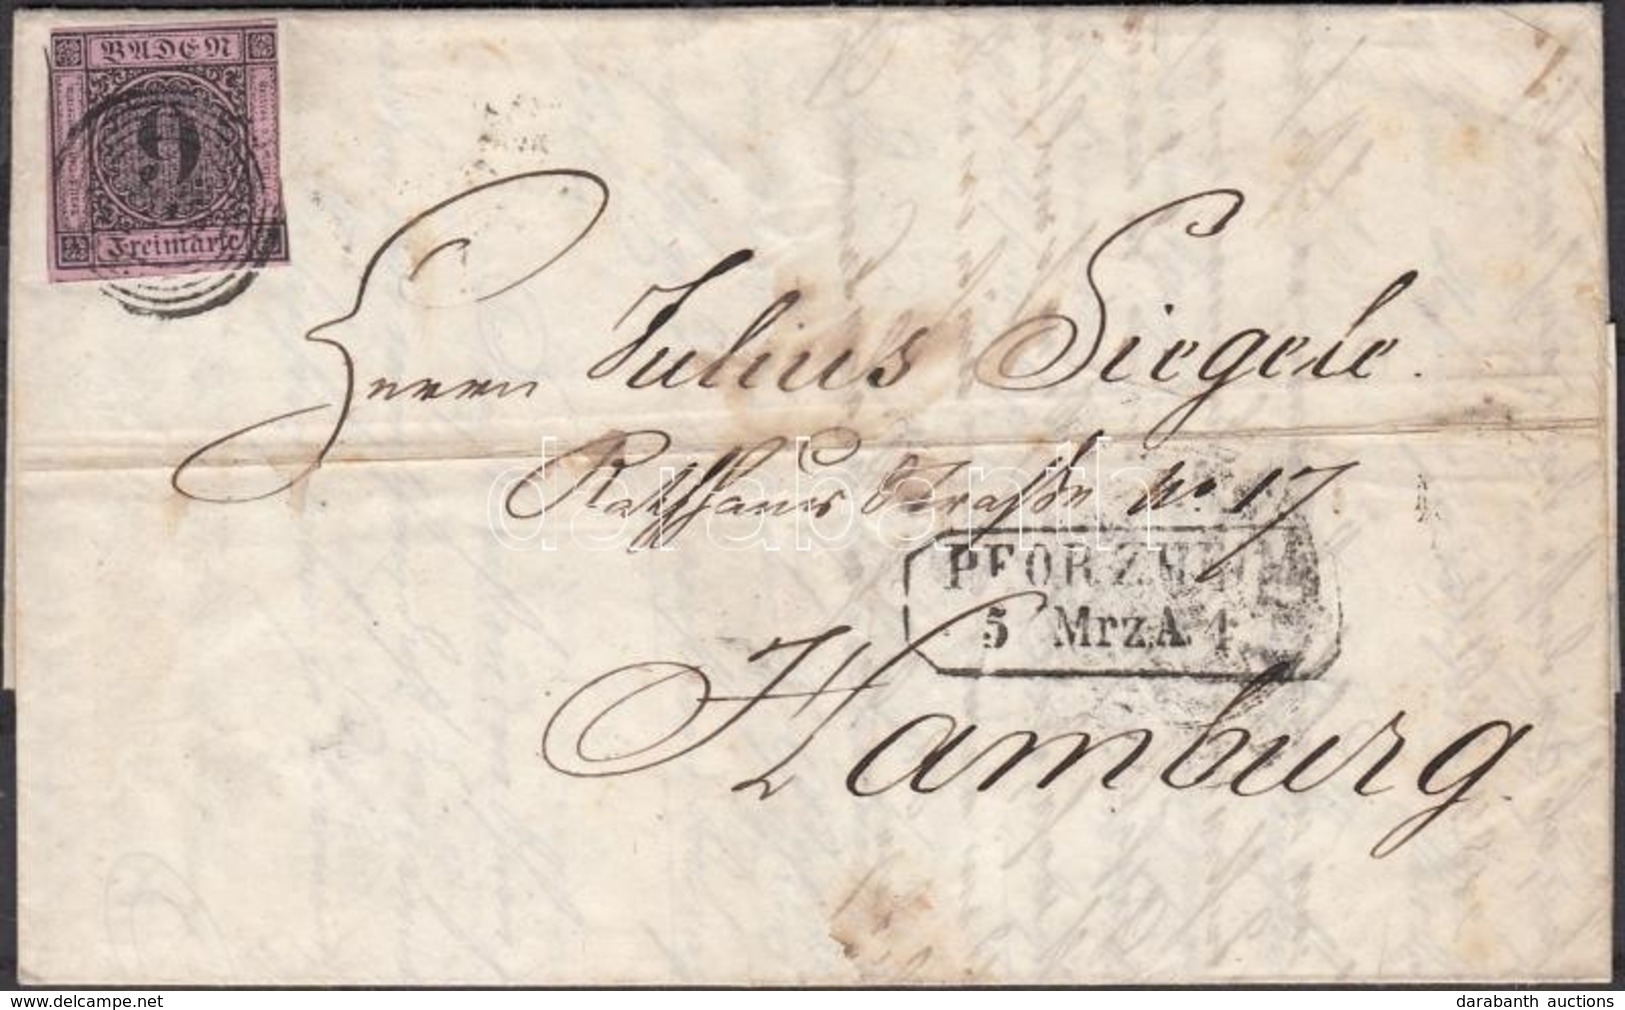 BADEN
9
Freimarke
Herrn Julius Siegele.
Rathhaus Straße No 17
darabanth
PFORZHEIM
5 Mrz A. 4
Hamburg
www.delcampe.net
darabanth auctions